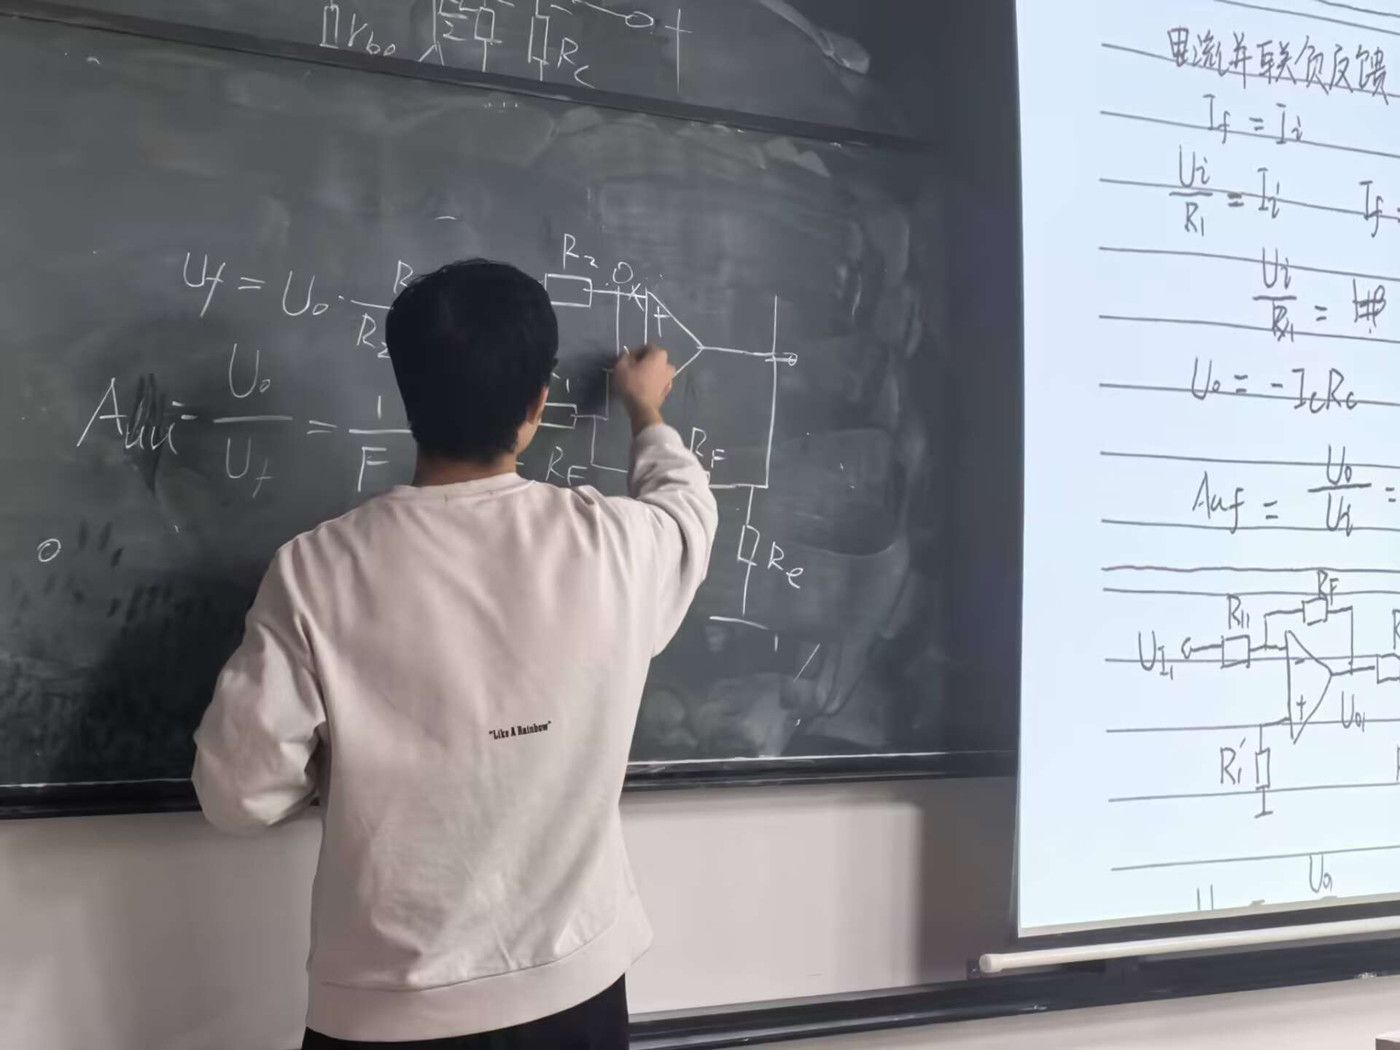 rbe
Rc
R2
Uf = Uo ·
R2
+
Auu = Uo / Uf = 1 / F
RF
RF
Re
"Like A Rainbow"
电流并联负反馈
If = Ii
Ui / R1 = Ii If =
Ui / R1 =
Uo = -IcRc
Auf = Uo / Ui =
RF
R11
UI1
-
+
Uo1
R1'
Uo1